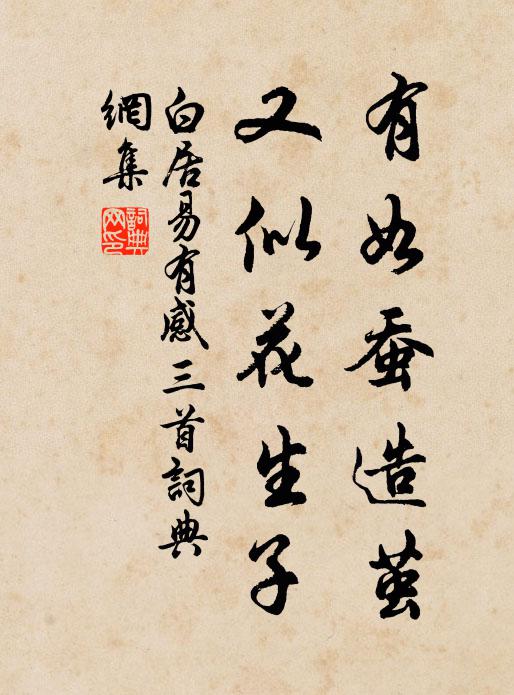 有如蚕造茧
又似花生子
白居易有感三首詞典
網集
詞典网印